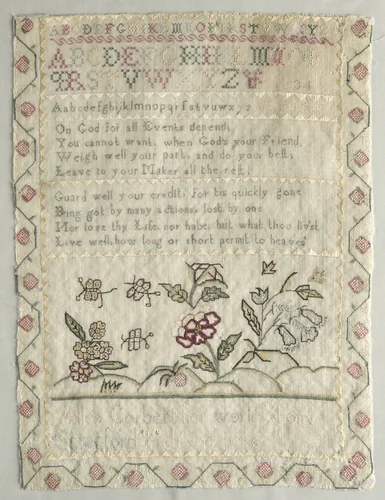 AB DEFGHIJKLMNOP RST V Y
ABCDEFGHIKLM
PQRSTVW XYZ
Aabcdefghijklmnopqrfstvuwxyz
On God for all Events depend,
You cannot want, when God's your Friend,
Weigh well your part, and do your best,
Leave to your Maker all the rest,
Guard well your credit, for tis quickly gone
Being got by many actions, lost by one
Nor love thy Life, nor hate, but what thou liv'st
Live well, how long or short permit to heaven
work